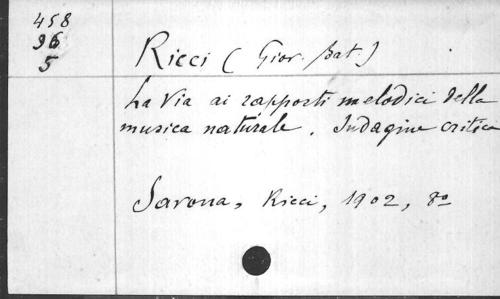 458
96
5
Ricci (Giov. Bat.)
La Via ai rapporti melodici della
musica naturale. Indagine critica
Savona, Ricci, 1902, 8º